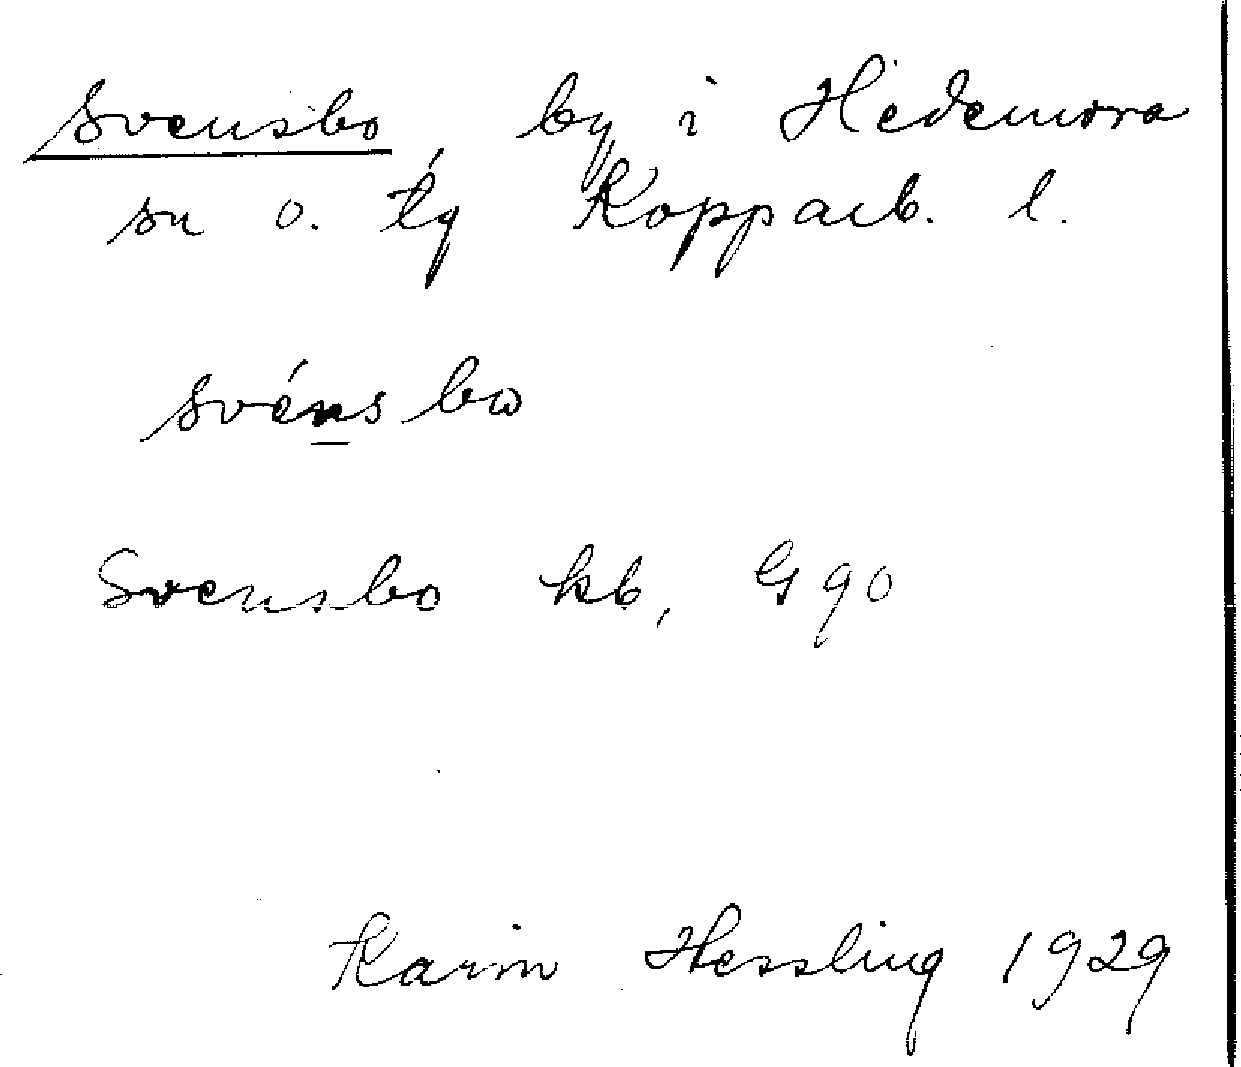 Svensbo by i Hedemora
sn o. tg Kopparb. l.
svénsbω
Svensbo kb, G 90
Karin Hessling 1929